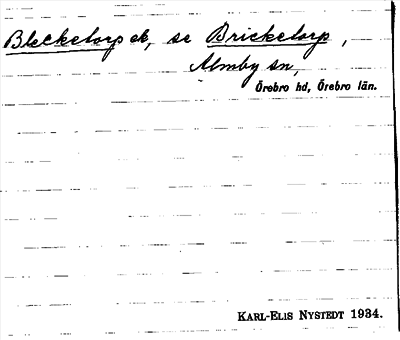 Bleketorp ek, se Bricketorp,
Almby sn,
Örebro hd, Örebro län.
KARL-ELIS NYSTEDT 1934.